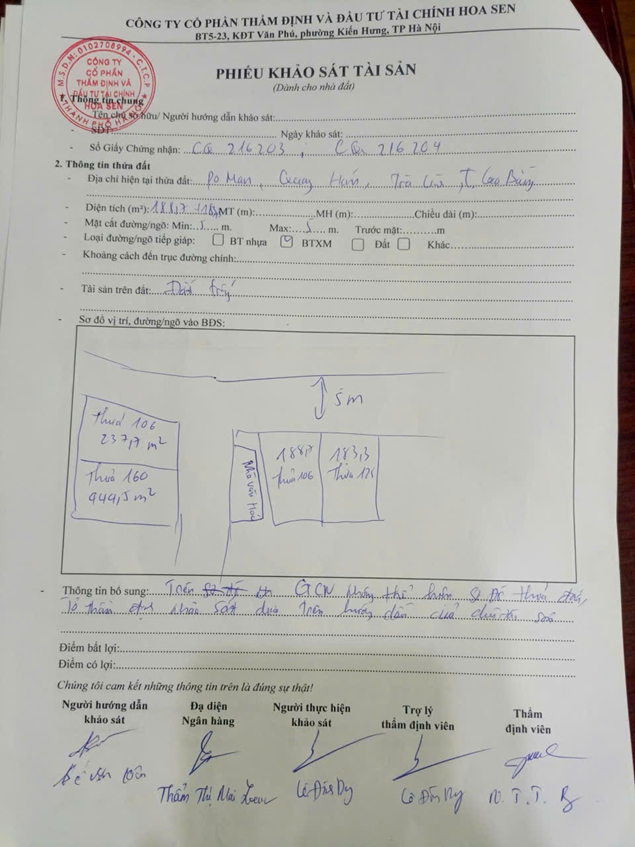 CÔNG TY CỔ PHẦN THẨM ĐỊNH VÀ ĐẦU TƯ TÀI CHÍNH HOA SEN
BT5-23, KĐT Văn Phú, phường Kiến Hưng, TP Hà Nội
M.S.D.N:0102708994 - C.T.C.P
CÔNG TY
CỔ PHẦN
THẨM ĐỊNH VÀ
ĐẦU TƯ TÀI CHÍNH
HOA SEN
THÀNH PHỐ HÀ NỘI
PHIẾU KHẢO SÁT TÀI SẢN
(Dành cho nhà đất)
1. Thông tin chung
Tên chủ sở hữu/ Người hướng dẫn khảo sát:
- SĐT: Ngày khảo sát:
- Số Giấy Chứng nhận: CQ 216203, CQ 216204
2. Thông tin thửa đất
- Địa chỉ hiện tại thửa đất: Quang Hán, Trà Lĩnh, T. Cao Bằng
- Diện tích (m²): 188,7 MT (m): MH (m): Chiều dài (m):
- Mặt cắt đường/ngõ: Min: 5 m. Max: 5 m. Trước mặt: m
- Loại đường/ngõ tiếp giáp: BT nhựa BTXM Đất Khác
- Khoảng cách đến trục đường chính:
- Tài sản trên đất: Đất trống
- Sơ đồ vị trí, đường/ngõ vào BĐS:
5m
Thửa 106
237,7 m²
Thửa 160
944,5 m²
Nhà văn hoá
188,7
Thửa 106
183,3
Thửa
- Thông tin bổ sung: Trên GCN không thể hiện sơ đồ thửa đất,
Tổ thẩm định khảo sát dựa trên hướng dẫn của chủ tài sản
Điểm bất lợi:
Điểm có lợi:
Chúng tôi cam kết những thông tin trên là đúng sự thật!
Người hướng dẫn khảo sát
Đại diện Ngân hàng
Người thực hiện khảo sát
Trợ lý thẩm định viên
Thẩm định viên
Thẩm Thị Mai
N. T. T.